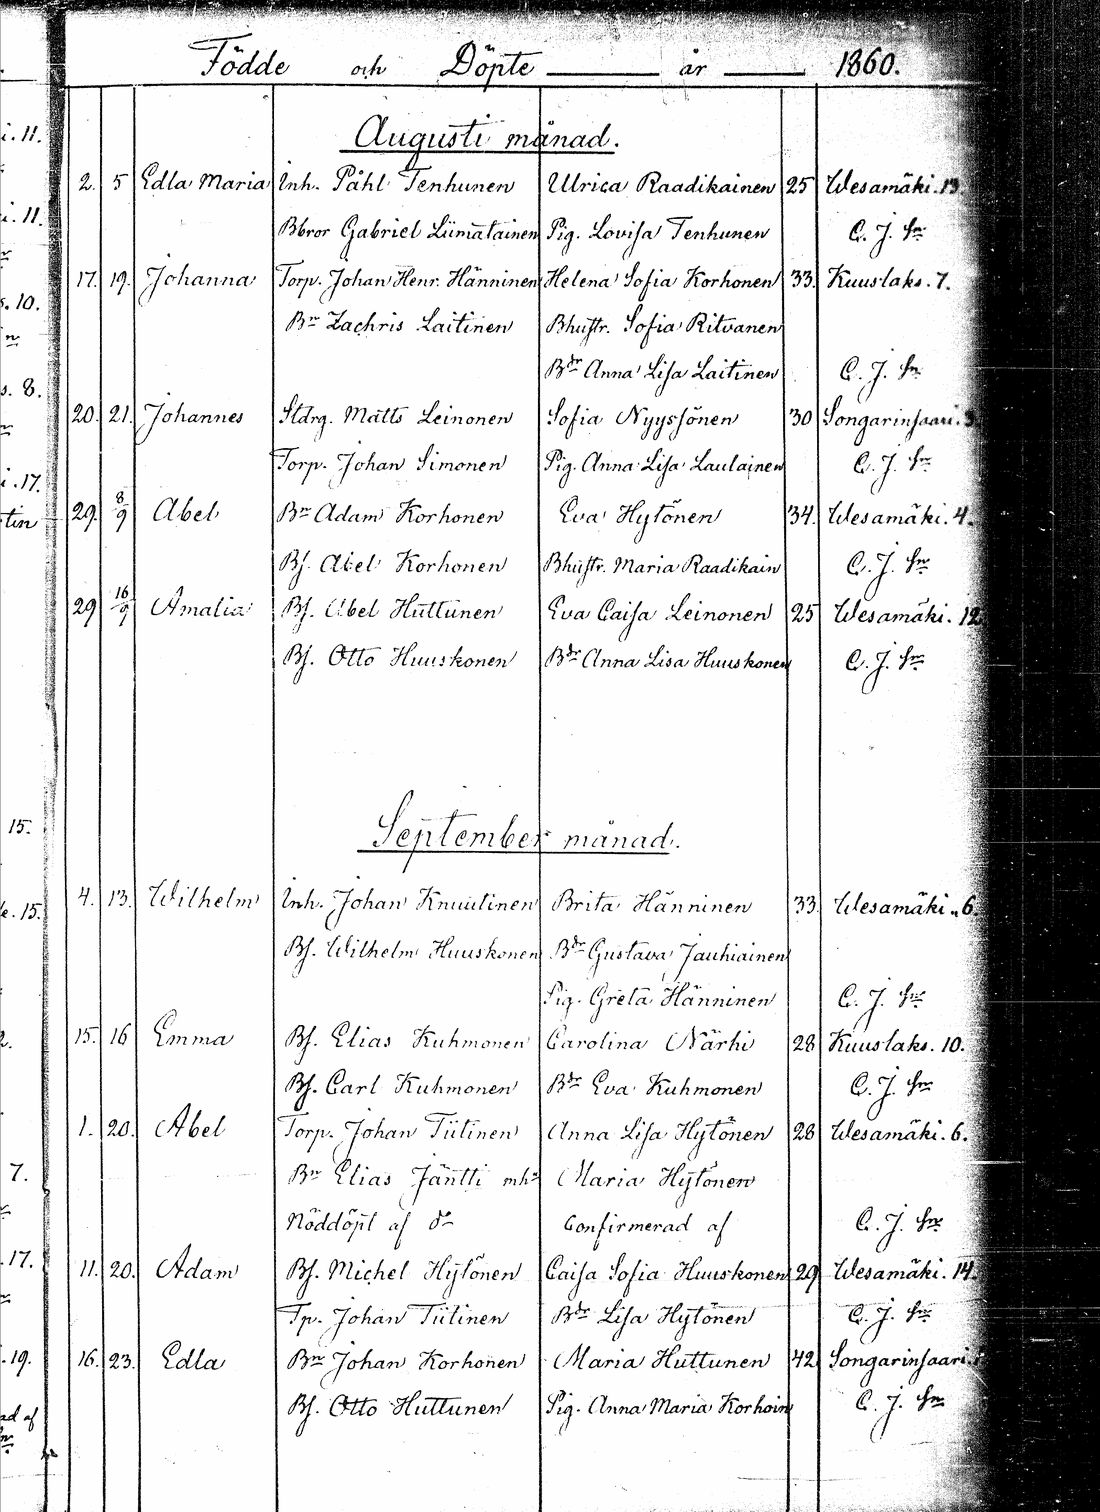 Födde och Döpte år 1860.
Augusti månad.
2. 5 Edla Maria Inh. Påhl Tenhunen Ulrica Raadikainen 25 Wesamäki. 13
Bbror Gabriel Liimatainen Pig. Lovisa Tenhunen C. J. Sn
17. 19. Johanna Torp. Johan Henr. Hänninen Helena Sofia Korhonen 33. Kuuslaks. 7.
Bn Zachris Laitinen Bhustr. Sofia Ritvanen
Bdr Anna Lisa Laitinen C. J. Sn
20. 21. Johannes Stdrg. Matts Leinonen Sofia Nyyssönen 30 Songarinsaari. 3
Torp. Johan Simonen Pig. Anna Lisa Laulainen C. J. Sn
29. 8/9 Abel Bn Adam Korhonen Eva Hytönen 34. Wesamäki. 4.
Bs. Abel Korhonen Bhustr. Maria Raadikain C. J. Sn
29 16/9 Amalia Bs. Abel Huttunen Eva Caisa Leinonen 25 Wesamäki. 12
Bs. Otto Huuskonen Bdr Anna Lisa Huuskonen C. J. Sn
September månad.
4. 13. Wilhelm Inh. Johan Knuutinen Brita Hänninen 33. Wesamäki. 6.
Bs. Wilhelm Huuskonen Bdr Gustava Jauhiainen
Pig. Greta Hänninen C. J. Sn
15. 16 Emma Bs. Elias Kuhmonen Carolina Närhi 28 Kuuslaks. 10.
Bs. Carl Kuhmonen Bdr Eva Kuhmonen C. J. Sn
1. 20. Abel Torp. Johan Tiitinen Anna Lisa Hytönen 28 Wesamäki. 6.
Bn Elias Jäntti mhu Maria Hytönen
Nöddöpt af dn Confirmerad af C. J. Sn
11. 20. Adam Bs. Michel Hytönen Caisa Sofia Huuskonen 29 Wesamäki. 14.
Tp. Johan Tiitinen Bdr Lisa Hytönen C. J. Sn
16. 23. Edla Bn Johan Korhonen Maria Huttunen 42 Songarinsaari.
Bs. Otto Huttunen Pig. Anna Maria Korhoin C. J. Sn